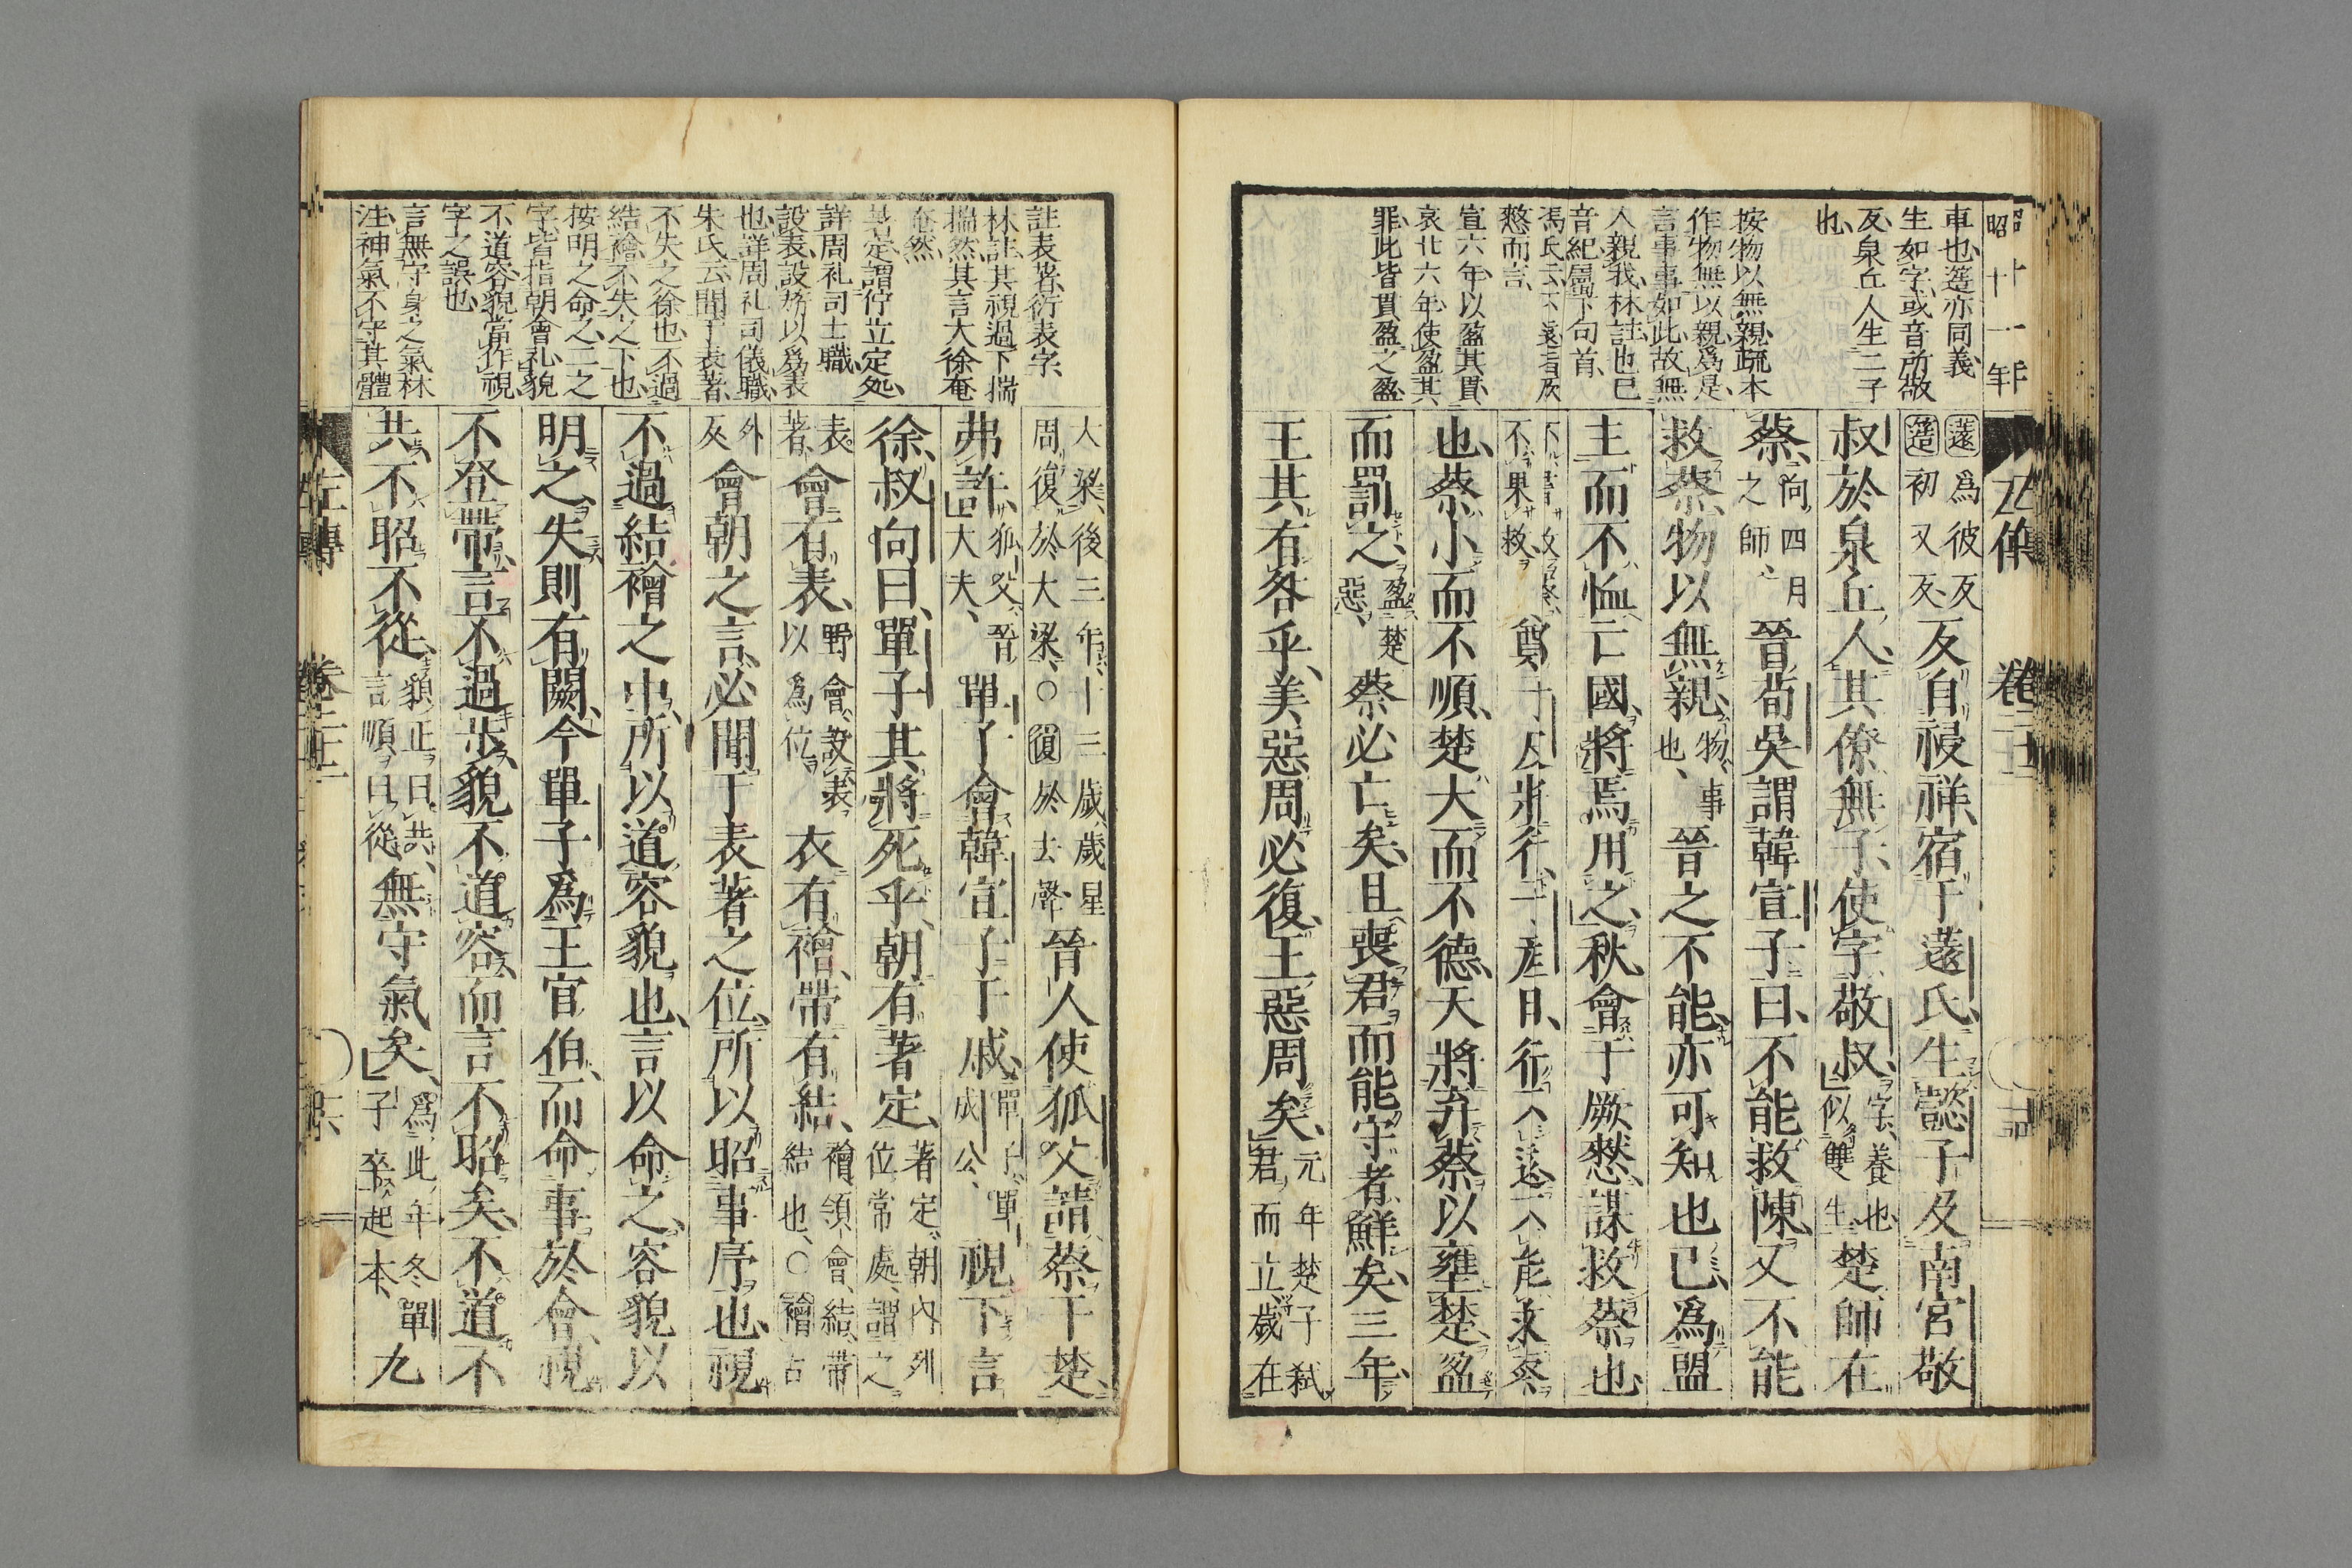 昭十一年
車也、薳亦同義、
生如字、或音所敬
反、泉丘人生二子
也、
按物以無親、疏本
作物無以親、爲是、
言事事如此、故無
人親我、林註、也已
音紀、屬下句首、
馮氏云、不遠者厥
憖而言、
宣六年、以盈其貫、
哀北六年、使盈其
罪、此皆貫盈之盈、
左傳 卷二十二
薳爲彼反
簉初又反、反自祲祥、宿于薳氏、生懿子及南宮敬
叔於泉丘人、其僚無子、使字敬叔、字、養也、似雙生、楚師在
蔡、向四月之師、晉荀吳謂韓宣子曰、不能救陳、又不能
救蔡、物以無親、物、事也、晉之不能、亦可知也已、爲盟
主而不恤亡國、將焉用之、秋會于厥憖、謀救蔡也、
不書救蔡、不果救、鄭子皮將行、子產曰、行不遠、不能救蔡
也、蔡小而不順、楚大而不德、天將弃蔡以壅楚、盈
而罰之、盈楚惡、蔡必亡矣、且喪君而能守者鮮矣、三年、
王其有咎乎、美惡周必復、王惡周矣、元年楚子弒君而立歲在
大梁、後三年、十三歲、歲星周復於大梁、○復於去聲、晉人使狐父請蔡于楚、
弗許、狐父、晉大夫、單子會韓宣子于戚、單子、單成公、視下言
徐、叔向曰、單子其將死乎、朝有著定、著定、朝內列位常處、謂之
表著、會有表、野會、設表以爲位、衣有襘、帶有結、襘、領會、結、帶結也、○襘古
外反、會朝之言、必聞于表著之位、所以昭事序也、視
不過結襘之中、所以道容貌也、言以命之、容貌以
明之、失則有闕、今單子爲王官伯、而命事於會、視
不登帶、言不過步、貌不道容、而言不昭矣、不道不
共、不昭不從、貌正曰共、言順曰從、無守氣矣、爲此年冬單子卒起本、九
註表著、衍表字、
林註、其視過下、揣
揣然、其言大徐、奄
奄然、
著定、謂佇立定処、
詳周礼司士職、
設表、設旍以爲表
也、詳周礼司儀職、
朱氏云、聞于表著、
不失之徐也、不過
結襘、不失之下也、
按明之命之、二之
字、皆指朝會礼貌
不道容、貌當作視、
字之誤也、
言無守身之氣、林
注、神氣不守其體
左傳 卷二十二